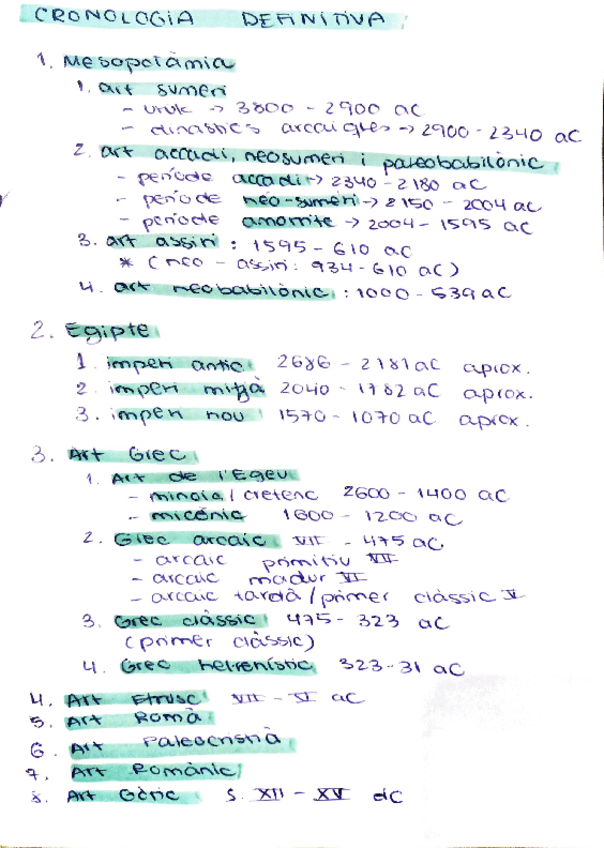 CRONOLOGIA DEFINITIVA
1. Mesopotàmia
1. art sumeri
- uruk -> 3800 - 2900 aC
- dinastics arcaiques -> 2900 - 2340 aC
2. art accadi, neosumeri i paleobabilònic
- període accadi -> 2340 - 2180 aC
- període neo-sumeri -> 2150 - 2004 aC
- període amorrite -> 2004 - 1595 aC
3. art assiri : 1595 - 610 aC
* (neo - assiri: 934 - 610 aC)
4. art neobabilònic : 1000 - 539 aC
2. Egipte
1. imperi antic 2686 - 2181 aC aprox.
2. imperi mitjà 2040 - 1782 aC aprox.
3. imperi nou 1570 - 1070 aC aprox.
3. Art Grec
1. Art de l'Egeu
- minoia / cretenc 2600 - 1400 aC
- micènic 1600 - 1200 aC
2. Grec arcaic VII - 475 aC
- arcaic primitiu VII
- arcaic madur VI
- arcaic tardà / primer clàssic V
3. Grec clàssic 475 - 323 aC
(primer clàssic)
4. Grec hel·lenístic 323 - 31 aC
4. Art Etrusc VII - VI aC
5. Art Romà
6. Art Paleocristià
7. Art Romànic
8. Art Gòtic S. XII - XV dC